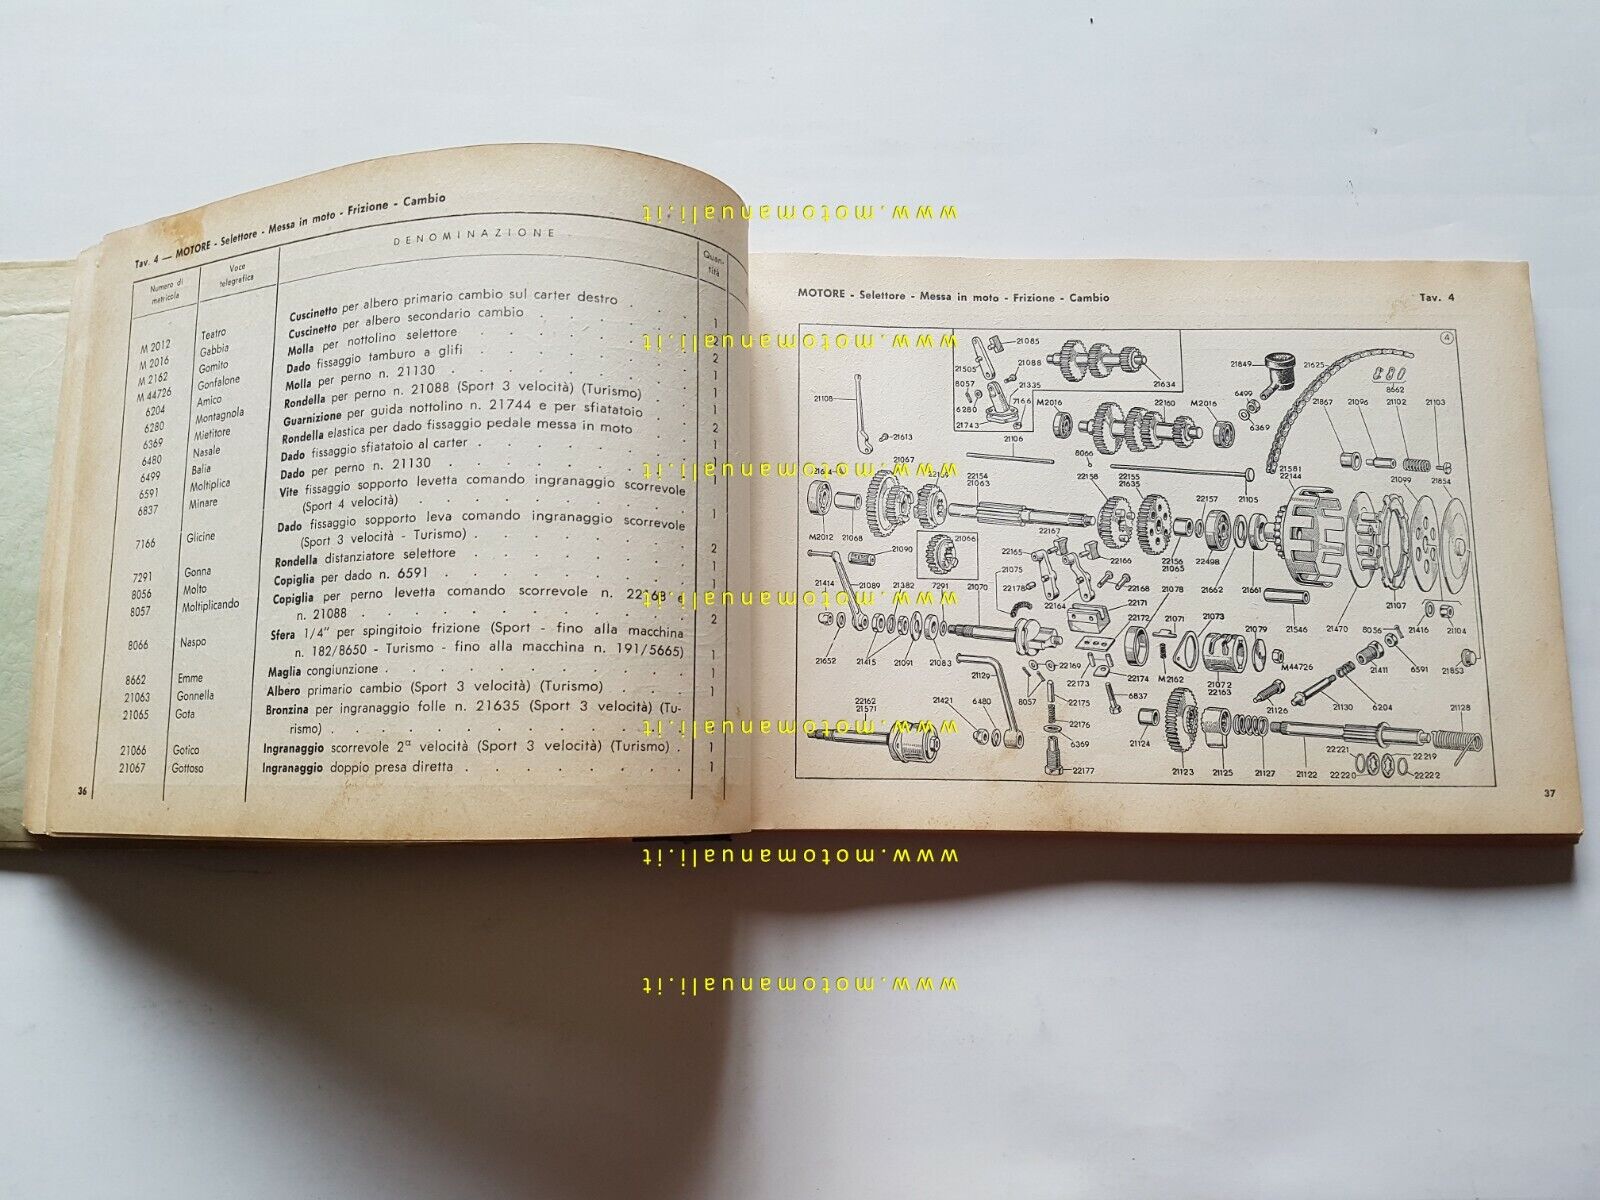 Tav. 4 — MOTORE - Selettore - Messa in moto - Frizione - Cambio
Numero di matricola
Voce telegrafica
DENOMINAZIONE
Quan-
tità
M 2012 Teatro Cuscinetto per albero primario cambio sul carter destro 1
M 2016 Gabbia Cuscinetto per albero secondario cambio 2
M 2162 Gomito Molla per nottolino selettore 2
M 44726 Gonfalone Dado fissaggio tamburo a glifi 1
6204 Amico Molla per perno n. 21130 1
6280 Montagnola Rondella per perno n. 21088 (Sport 3 velocità) (Turismo) 1
6369 Mietitore Guarnizione per guida nottolino n. 21744 e per sfiatatoio 2
6480 Nasale Rondella elastica per dado fissaggio pedale messa in moto 1
6499 Balia Dado fissaggio sfiatatoio al carter 1
6591 Moltiplica Dado per perno n. 21130 1
6837 Minare Vite fissaggio sopporto levetta comando ingranaggio scorrevole
(Sport 4 velocità) 1
7166 Glicine Dado fissaggio sopporto leva comando ingranaggio scorrevole
(Sport 3 velocità - Turismo) 2
7291 Gonna Rondella distanziatore selettore 1
8056 Molto Copiglia per dado n. 6591 1
8057 Moltiplicando Copiglia per perno levetta comando scorrevole n. 22168 e
n. 21088 2
8066 Naspo Sfera 1/4" per spingitoio frizione (Sport - fino alla macchina
n. 182/8650 - Turismo - fino alla macchina n. 191/5665) 1
8662 Emme Maglia congiunzione 1
21063 Gonnella Albero primario cambio (Sport 3 velocità) (Turismo) 1
21065 Gota Bronzina per ingranaggio folle n. 21635 (Sport 3 velocità) (Tu-
rismo) 1
21066 Gotico Ingranaggio scorrevole 2ª velocità (Sport 3 velocità) (Turismo) 1
21067 Gottoso Ingranaggio doppio presa diretta 1
36
MOTORE - Selettore - Messa in moto - Frizione - Cambio Tav. 4
4
21085
21505
21088
8057
21335
7166
6280
21743
21634
21108
21613
M2016
22160
M2016
21849
6499
6369
21625
8662
21867
21096
21102
21103
21106
8066
21067
22154
21063
22158
22155
21635
22157
21105
21581
22144
21099
21854
M2012
21068
21090
21066
22167
22165
22166
22156
21065
22498
21662
21661
21414
21089
21382
7291
21070
21075
22178
22164
22168
21078
22171
22172
21071
21073
21079
21546
21470
21107
8056
21416
21104
21652
21415
21091
21083
21129
22169
22173
22174
M2162
21072
22163
M44726
21411
6591
21853
22162
21571
21421
6480
8057
22175
22176
6369
22177
6837
21124
21123
21125
21127
21126
21130
6204
21122
21128
22221
22219
22220
22222
37
www.motomanuali.it
www.motomanuali.it
www.motomanuali.it
www.motomanuali.it
www.motomanuali.it
www.motomanuali.it
www.motomanuali.it